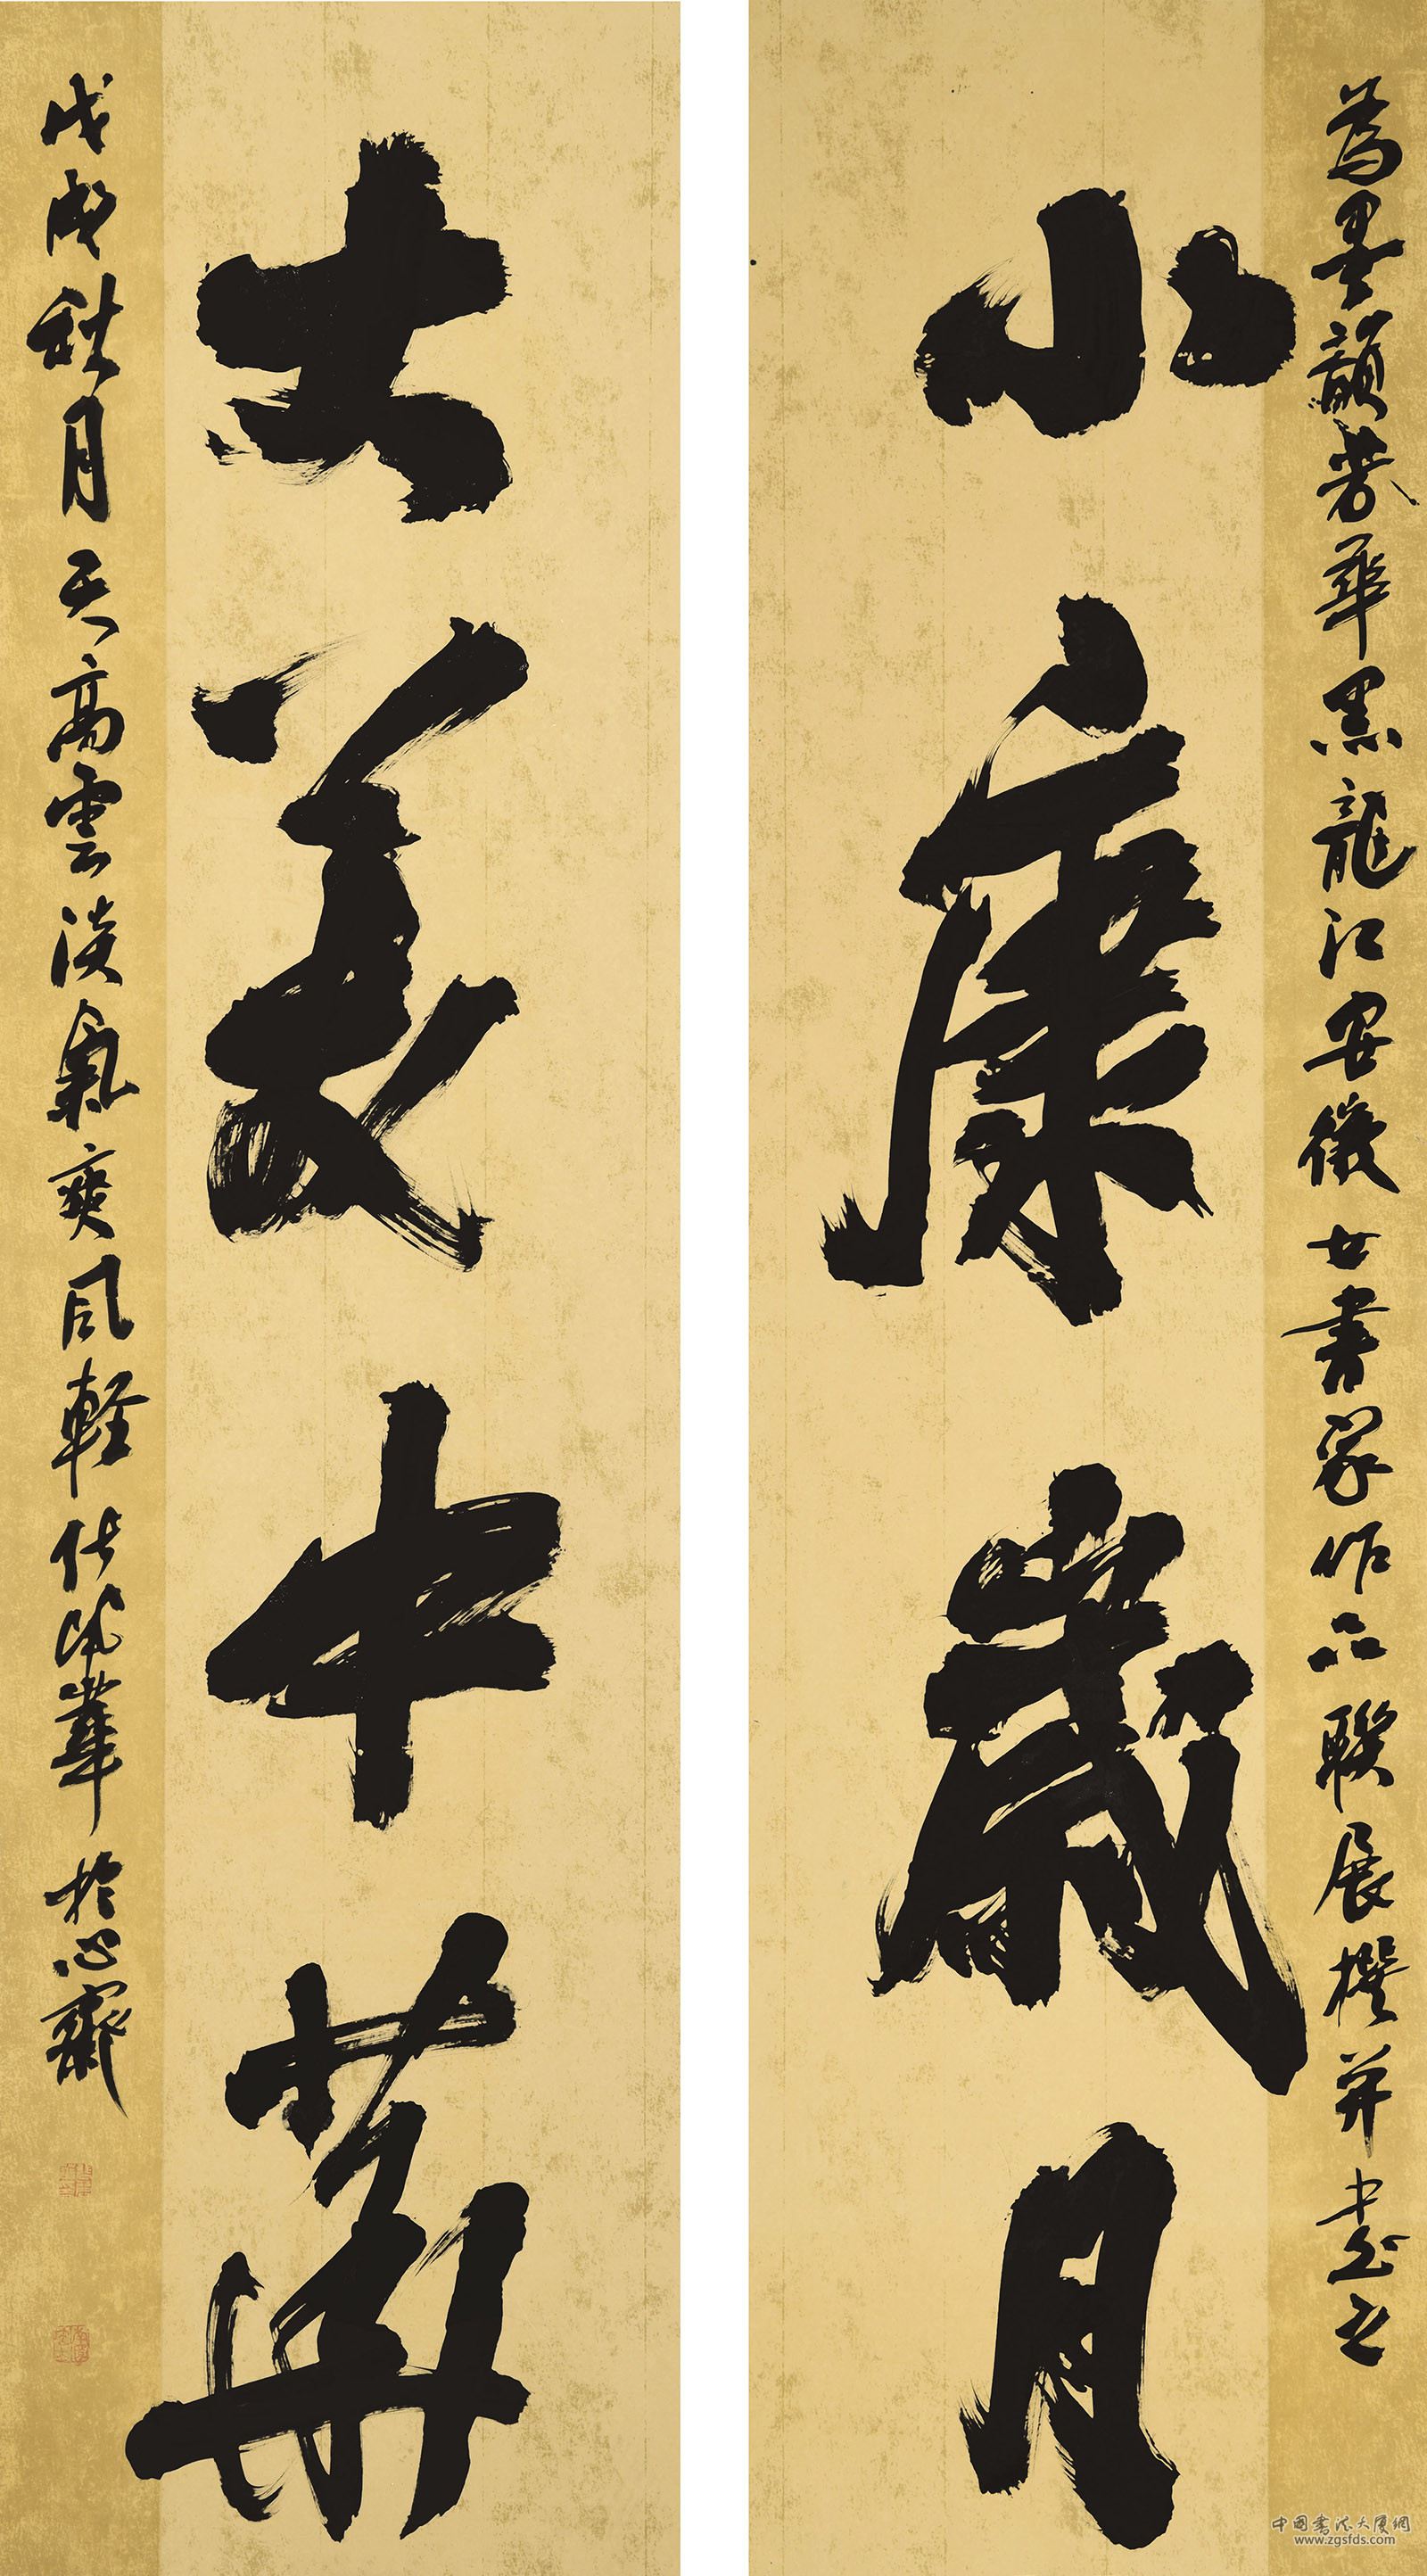 為墨韻芳華黑龍江安徽女書家作品聯展撰并書之
小康歲月
大美中華
戊戌秋月天高雲淡氣爽風輕
華於心齋
中国书法大厦网
www.zgsfds.com